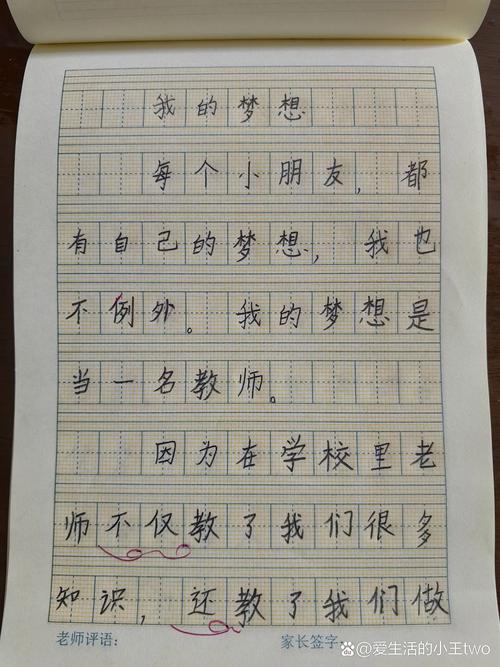 我的梦想
每个小朋友，都
有自己的梦想，我也
不例外。我的梦想是
当一名教师。
因为在学校里老
师不仅教了我们很多
知识，还教了我们做
老师评语： 家长签字：
爱生活的小王two